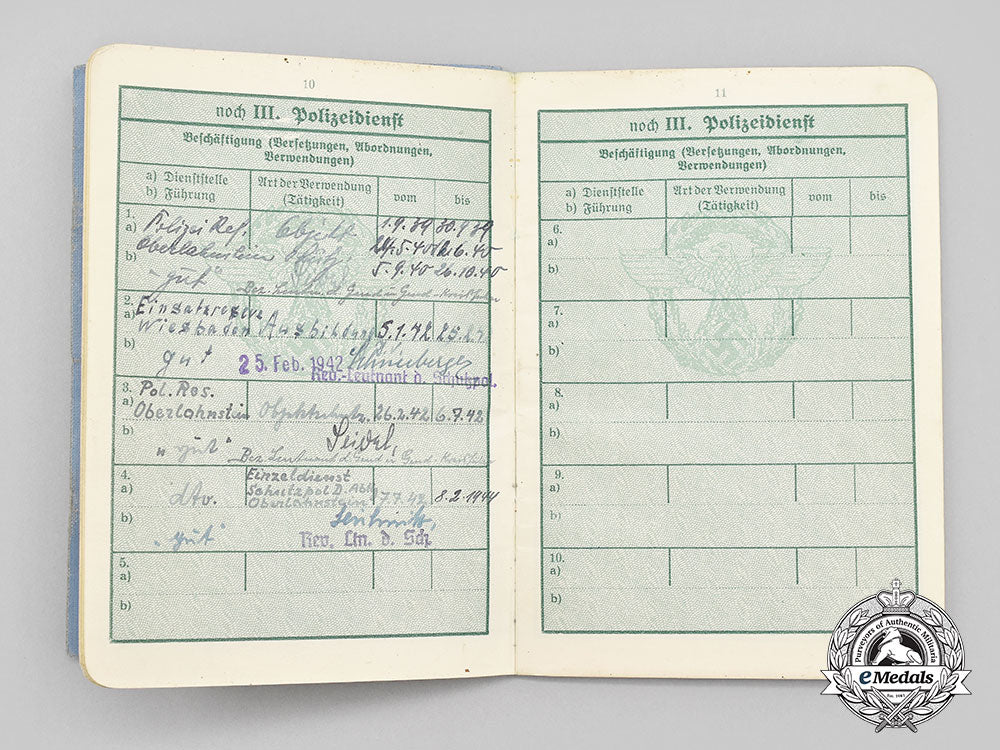 10
noch III. Polizeidienst
Beschäftigung (Versetzungen, Abordnungen,
Verwendungen)
a) Dienststelle
b) Führung
Art der Verwendung
(Tätigkeit)
vom
bis
1.
a) Polizei Res.
Oberlahnstein
1.9.39 30.9.39
5.9.40 26.10.40
b) "gut"
Bez. Leutnant d. Gend
2.
a) Einsatzreserve
Wiesbaden Ausbildung 5.1.42
b) gut
25. Feb. 1942
Rev.-Leutnant d. Schutzpol.
3.
a) Pol. Res.
Oberlahnstein Objektschutz 26.2.42 6.7.42
b) "gut"
Seidel,
Bez. Leutnant d. Gend
4.
a) dto.
Einzeldienst
Schutzpol D. Abt.
Oberlahnstein 7.7.42 8.2.1944
b) "gut"
Rev. Ltn. d. Sch.
5.
a)
b)
11
noch III. Polizeidienst
Beschäftigung (Versetzungen, Abordnungen,
Verwendungen)
a) Dienststelle
b) Führung
Art der Verwendung
(Tätigkeit)
vom
bis
6.
a)
b)
7.
a)
b)
8.
a)
b)
9.
a)
b)
10.
a)
b)
Purveyors of Authentic Militaria
eMedals